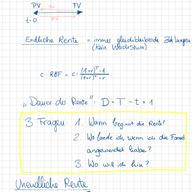 PV FV
t=0
Endliche Rente = immer gleichbleibende Zahlungen
(kein Wachstum)
c · RBF = c · (1+r)^T - 1 / (1+r)^T · r
"Dauer der Rente": D = T - t + 1
3 Fragen 1. Wann beginnt die Rente?
2. Wo lande ich, wenn ich die Formel
angewendet habe?
3. Wo will ich hin?
Unendliche Rente